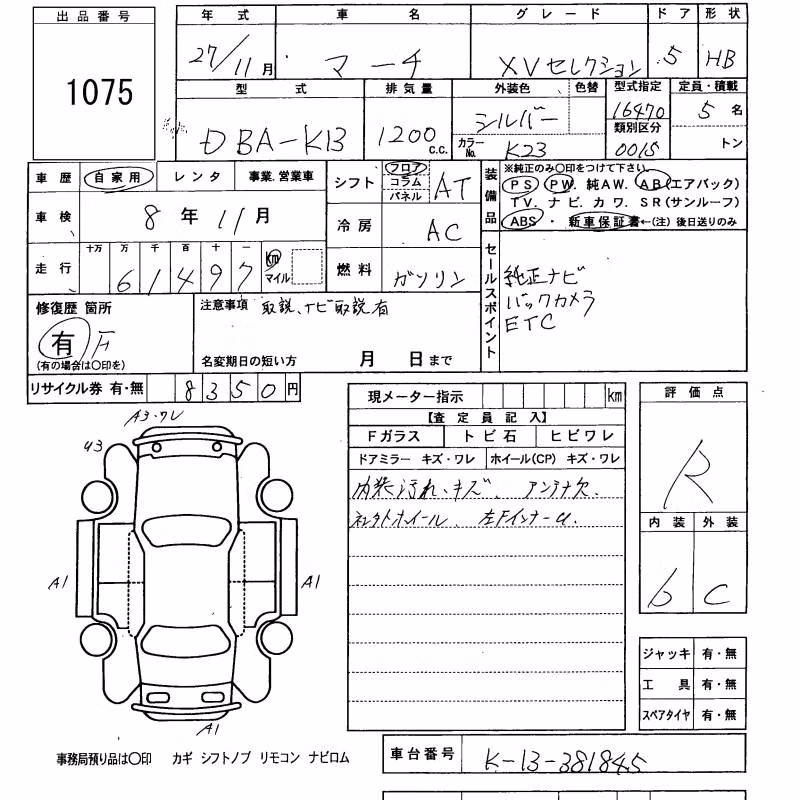 出品番号
1075
年式 車名 グレード ドア 形状
27/11月 マーチ XVセレクション 5 HB
型式 排気量 外装色 色替 型式指定 定員・積載
DBA-K13 1200c.c. シルバー 16470 5名
カラーNo. K23 類別区分 0015 トン
車歴 自家用 レンタ 事業.営業車
車検 8年11月
走行 十万 万 千 百 十 一
61497 km マイル
シフト フロア コラム パネル AT
冷房 AC
燃料 ガソリン
装備品
※純正のみ〇印をつけて下さい。
PS PW. 純AW. AB(エアバック)
TV. ナビ. カワ. SR(サンルーフ)
ABS・新車保証書←(注)後日送りのみ
セールスポイント
純正ナビ
バックカメラ
ETC
修復歴 箇所
有 F
(有の場合は〇印を)
注意事項 取説、ナビ取説有
名変期日の短い方 月 日まで
リサイクル券 有・無 8350円
A3・ワレ
U3
A1
A1
A1
現メーター指示 km
【査定員記入】
Fガラス トビ石 ヒビワレ
ドアミラー キズ・ワレ ホイール(CP) キズ・ワレ
内装汚れ、キズ、アンテナ欠.
左Fインナーu.
評価点
R
内装 外装
b C
ジャッキ 有・無
工具 有・無
スペアタイヤ 有・無
事務局預り品は〇印 カギ シフトノブ リモコン ナビロム
車台番号 K-13-381845